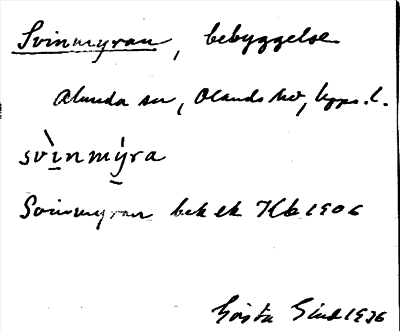 Svinmyran, bebyggelse
Almunda sn, Olands hd, Upps. l.
svìnmýra
Svinmyran bek ek Kb 1906
Gösta 1936